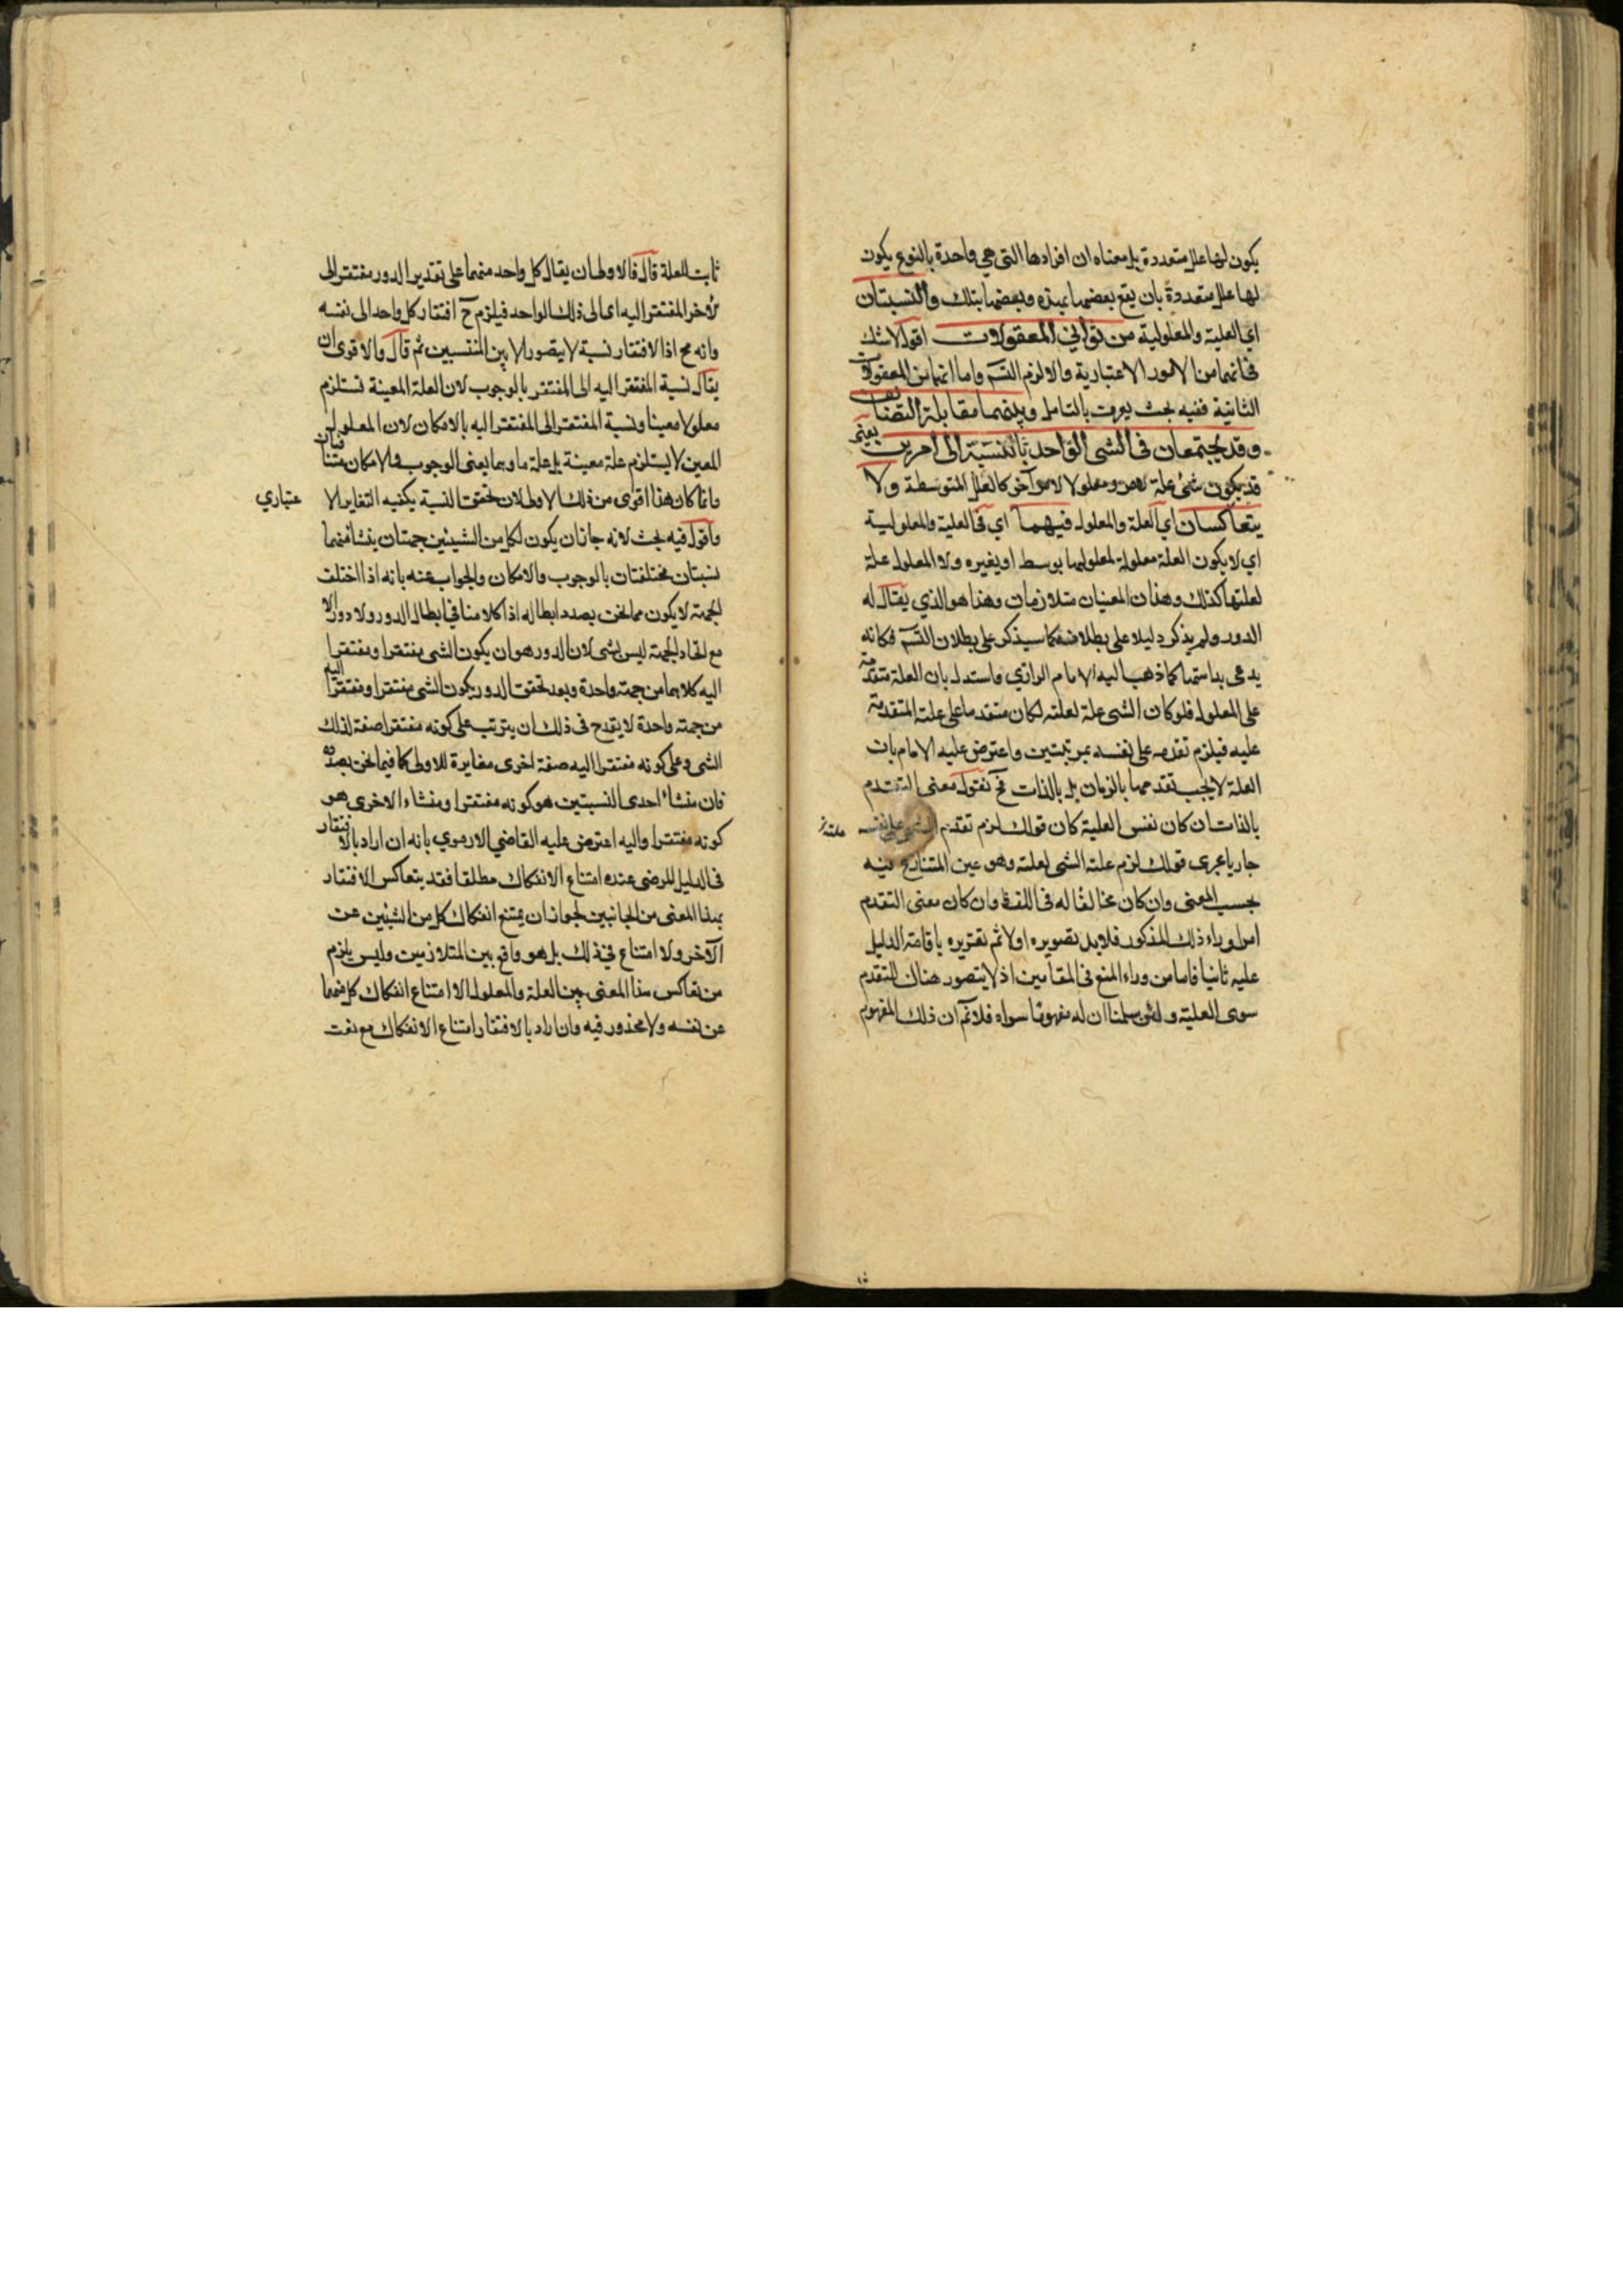 يكون لها علل متعددة بل معناه ان افرادها التي هي واحدة بالنوع يكون
لها علل متعددة بان يقع بعضها بهذه وبعضها بتلك والنسبتان
اي العلية والمعلولية من ثواني المعقولات اقول لا شك
في انهما من الامور الاعتبارية والا لزم التسم واما انهما من المعقولات
الثانية ففيه بحث يعرف بالتامل وبينهما مقابلة التضايف
وقد يجتمعان في الشي الواحد بالنسبة الى امرين يعني
قد يكون شيء علة لامر ومعلولا لامر آخر كالعلل المتوسطة ولا
يتعاكسان اي العلة والمعلول فيهما اي في العلية والمعلولية
اي لا يكون العلة معلولة لمعلولها بوسط او بغيره ولا المعلول علة
لعلتها كذلك وهذان المعنيان متلازمان وهذا هو الذي يقال له
الدور ولم يذكر دليلا على بطلانه كما سيذكر على بطلان التسم فكانه
يدعي بداهتها كما ذهب اليه الامام الرازي واستدل بان العلة متقدمة
على المعلول فلو كان الشي علة لعلته لكان متقدما على علته المتقدمة
عليه فيلزم تقدمه على نفسه بمرتبتين واعترض عليه الامام بان
العلة لا يجب تقدمها بالزمان بل بالذات فح نقول معنى التقدم
بالذات ان كان نفس العلية كان قولك لزم تقدم الشي على نفسه علته
جاريا مجرى قولك لزم علة الشي لعلته وهو عين المتنازع فيه
بحسب المعنى وان كان مخالفا له في اللفظ وان كان معنى التقدم
امرا وراء ذلك المذكور فلا بد تصويره اولا ثم تقريره باقامة الدليل
عليه ثانيا فانا من وراء المنع في المقامين اذ لا يتصور هناك للتقدم
سوى العلية ولئن سلمنا ان له مفهوما سواه فلا نم ان ذلك المفهوم
ثابت للعلة قال فالاولى ان يقال كل واحد منهما على تقدير الدور مفتقر الى
الآخر المفتقر اليه اي الى ذلك الواحد فيلزم ح افتقار كل واحد الى نفسه
وانه مح اذ الافتقار نسبة لا يتصور الا بين المنتسبين ثم قال والاقوى ان
يقال نسبة المفتقر اليه الى المفتقر بالوجوب لان العلة المعينة تستلزم
معلولا معينا ونسبة المفتقر الى المفتقر اليه بالامكان لان المعلول
المعين لا يستلزم علة معينة بل علة ما وهما يعني الوجوب والامكان متنافيان
وانما كان هذا اقوى من ذلك الاولى لان تحقق النسبة يكفيه التغاير الا
عتباري
واقول فيه بحث لانه جاز ان يكون لكل من الشيئين جهتان ينشا منهما
نسبتان مختلفتان بالوجوب والامكان والجواب عنه بانه اذا اختلف
الجهة لا يكون مما نحن بصدد ابطاله اذ كلامنا في ابطال الدور ولا دور الا
مع اتحاد الجهة ليس بشي لان الدور هو ان يكون الشي مفتقرا ومفتقرا
اليه كلاهما من جهة واحدة وبعد تحقق الدور بكون الشي مفتقرا ومفتقرا اليه
من جهة واحدة لا يقدح في ذلك ان يترتب على كونه مفتقرا صفة لذلك
الشي وعلى كونه مفتقرا اليه صفة اخرى مغايرة للاولى كما فيما نحن بصدده
فان منشاء احدى النسبتين هو كونه مفتقرا ومنشاء الاخرى هو
كونه مفتقرا واليه اعترض عليه القاضي الارموي بانه ان اراد بالافتقار
في الدليل المرضي عنده امتناع الانفكاك مطلقا فقد يتعاكس الافتقار
بهذا المعنى من الجانبين لجواز ان يمتنع انفكاك كل من الشيئين عن
الآخر ولا امتناع في ذلك بل هو واقع بين المتلازمين وليس يلزم
من تعاكس هذا المعنى بين العلة والمعلول الا امتناع انفكاك كل منهما
عن نفسه ولا محذور فيه وان اراد بالافتقار امتناع الانفكاك مع نعت